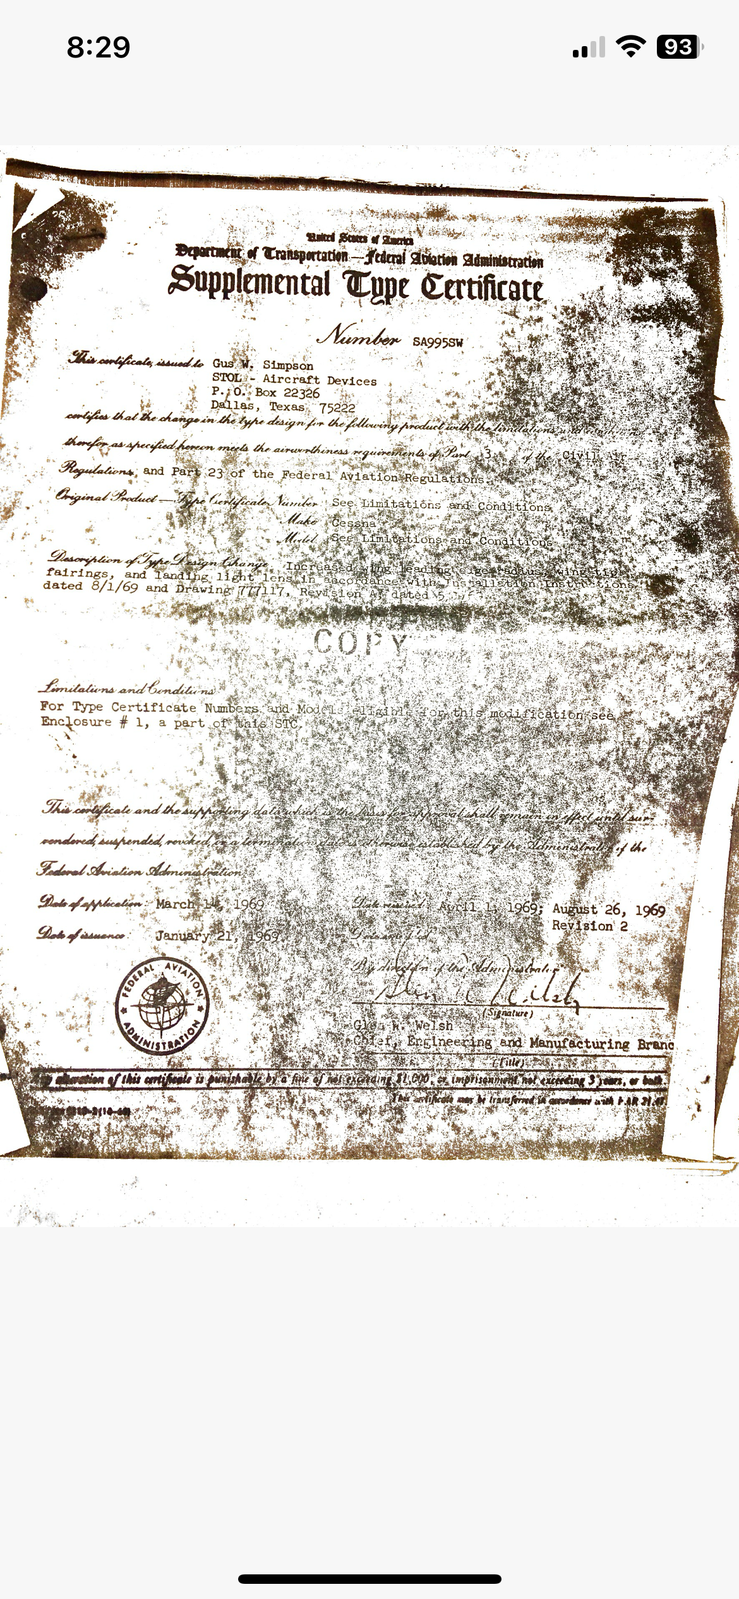 8:29
93
United States of America
Department of Transportation — Federal Aviation Administration
Supplemental Type Certificate
Number SA995SW
This certificate, issued to Gus W. Simpson
STOL - Aircraft Devices
P. O. Box 22326
Dallas, Texas 75222
certifies that the change in the type design for the following product with the limitations and
therefor as specified hereon meets the airworthiness requirements of Part 3 of the Civil Air
Regulations, and Part 23 of the Federal Aviation Regulations.
Original Product — Type Certificate Number See Limitations and Conditions
Make Cessna
Model See Limitations and Conditions
Description of Type Design Change Increased wing leading edge radius, wing tip
fairings, and landing light lens in accordance with Installation Instructions
dated 8/1/69 and Drawing 777117, Revision dated
COPY
Limitations and Conditions
For Type Certificate Numbers and Models eligible for this modification, see
Enclosure # 1, a part of this STC.
This certificate and the supporting data which is the basis for approval shall remain in effect until sur-
rendered, suspended, revoked, or a termination date is otherwise established by the Administrator of the
Federal Aviation Administration.
Date of application: March 1969
Date reissued: April 1, 1969; August 26, 1969
Revision 2
Date of issuance January 21, 1969
Date amended
By direction of the Administrator
FEDERAL AVIATION ADMINISTRATION
(Signature)
Glen W. Welsh
Chief, Engineering and Manufacturing Branc
(Title)
Any alteration of this certificate is punishable by a fine of not exceeding $1,000, or imprisonment not exceeding 3 years, or both.
This certificate may be transferred in accordance with FAR 21.47.